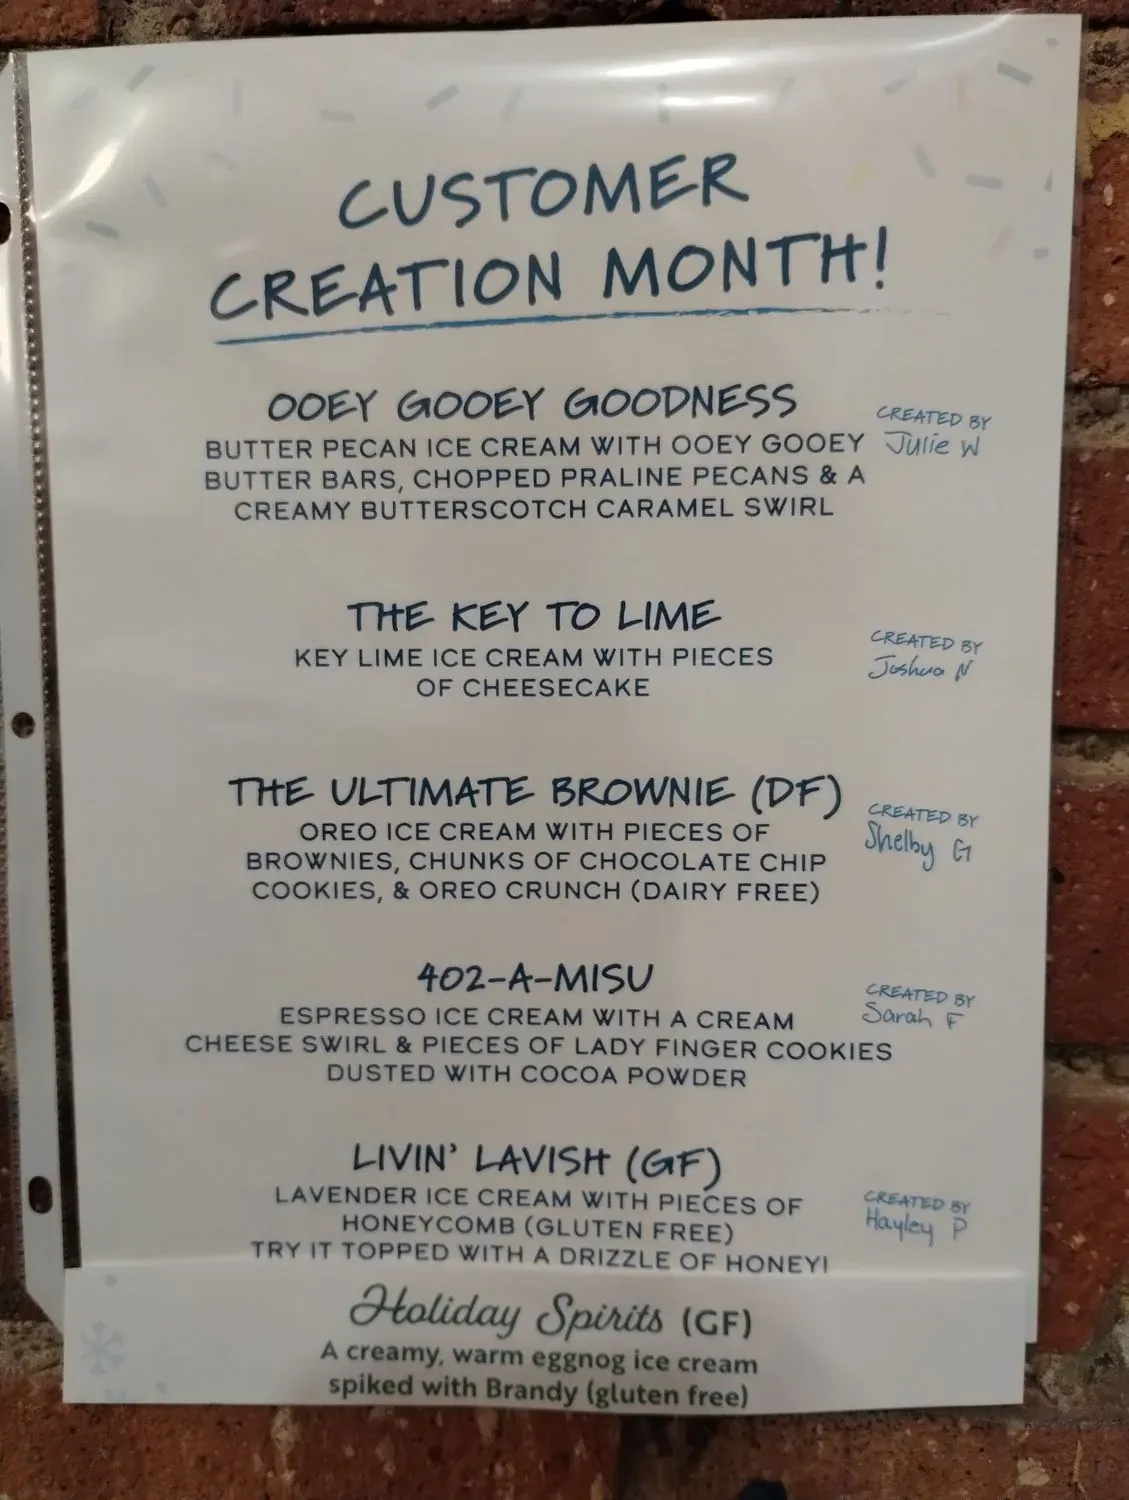 CUSTOMER
CREATION MONTH!
OOEY GOOEY GOODNESS
BUTTER PECAN ICE CREAM WITH OOEY GOOEY
BUTTER BARS, CHOPPED PRALINE PECANS & A
CREAMY BUTTERSCOTCH CARAMEL SWIRL
CREATED BY
Julie W
THE KEY TO LIME
KEY LIME ICE CREAM WITH PIECES
OF CHEESECAKE
CREATED BY
Joshua N
THE ULTIMATE BROWNIE (DF)
OREO ICE CREAM WITH PIECES OF
BROWNIES, CHUNKS OF CHOCOLATE CHIP
COOKIES, & OREO CRUNCH (DAIRY FREE)
CREATED BY
Shelby G
402-A-MISU
ESPRESSO ICE CREAM WITH A CREAM
CHEESE SWIRL & PIECES OF LADY FINGER COOKIES
DUSTED WITH COCOA POWDER
CREATED BY
Sarah F
LIVIN' LAVISH (GF)
LAVENDER ICE CREAM WITH PIECES OF
HONEYCOMB (GLUTEN FREE)
TRY IT TOPPED WITH A DRIZZLE OF HONEY!
CREATED BY
Hayley P
Holiday Spirits (GF)
A creamy, warm eggnog ice cream
spiked with Brandy (gluten free)